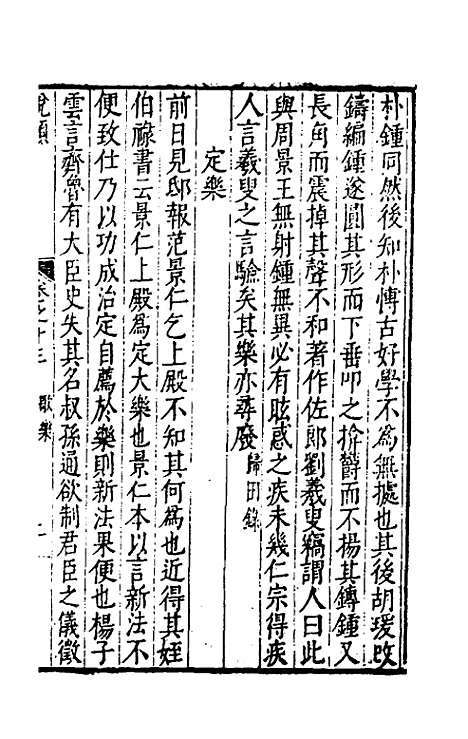 朴鍾同然後知朴愽古好學不為無據也其後胡瑗改
鑄編鍾遂圓其形而下垂叩之掩欝而不揚其鎛鍾又
長甬而震掉其聲不和著作佐郎劉羲叟竊謂人曰此
與周景王無射鍾無異必有眩惑之疾未幾仁宗得疾
人言羲叟之言驗矣其樂亦尋廢歸田錄
定樂
前日見邸報范景仁乞上殿不知其何為也近得其姪
伯祿書云景仁上殿為定大樂也景仁本以言新法不
便致仕乃以功成治定自薦於樂則新法果便也楊子
雲言齊魯有大臣史失其名叔孫通欲制君臣之儀徵
說類 卷之十三 樂 二